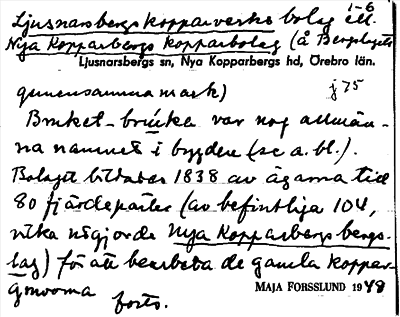 1-6
Ljusnarsbergs kopparverks bolag ell.
Nya Kopparbergs kopparbolag (å Bergslagets
Ljusnarsbergs sn, Nya Kopparbergs hd, Örebro län.
gemensamma mark) j 75
Bruket - brúket var nog allmän-
na namnet i bygden (se a. bl.).
Bolaget bildades 1838 av ägarna till
80 fjärdeparter (av befintliga 104,
vilka utgjorde Nya Kopparbergs bergs-
lag) för att bearbeta de gamla koppar-
gruvorna forts.
MAJA FORSSLUND 1948